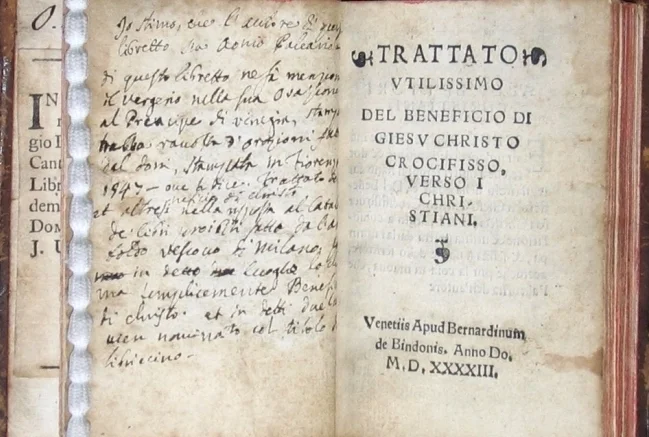 O.
IN
gio
Cant
Libr
dem
Dom
J. U
Io stimo, che l'autore di
libretto sia Aonio Paleario
di questo libretto ne fa menzion
il vergerio nella sua
al Principe di venezia, stampa
tralla raccolta d'orazioni
del doni, stampata in Fiorenz
1547 — ove si dice Trattato
beneficio di christo
et altresi nella risposta al Cata
de libri proibiti fatto da
vescovo di Milano,
in detto luogho lo
ma semplicemente Benefi
di christo. et in detti due
vien nominato col titolo
libriccino —
TRATTATO
VTILISSIMO
DEL BENEFICIO DI
GIESV CHRISTO
CROCIFISSO,
VERSO I
CHRI-
STIANI.
Venetiis Apud Bernardinum
de Bindonis. Anno Do.
M. D. XXXXIII.